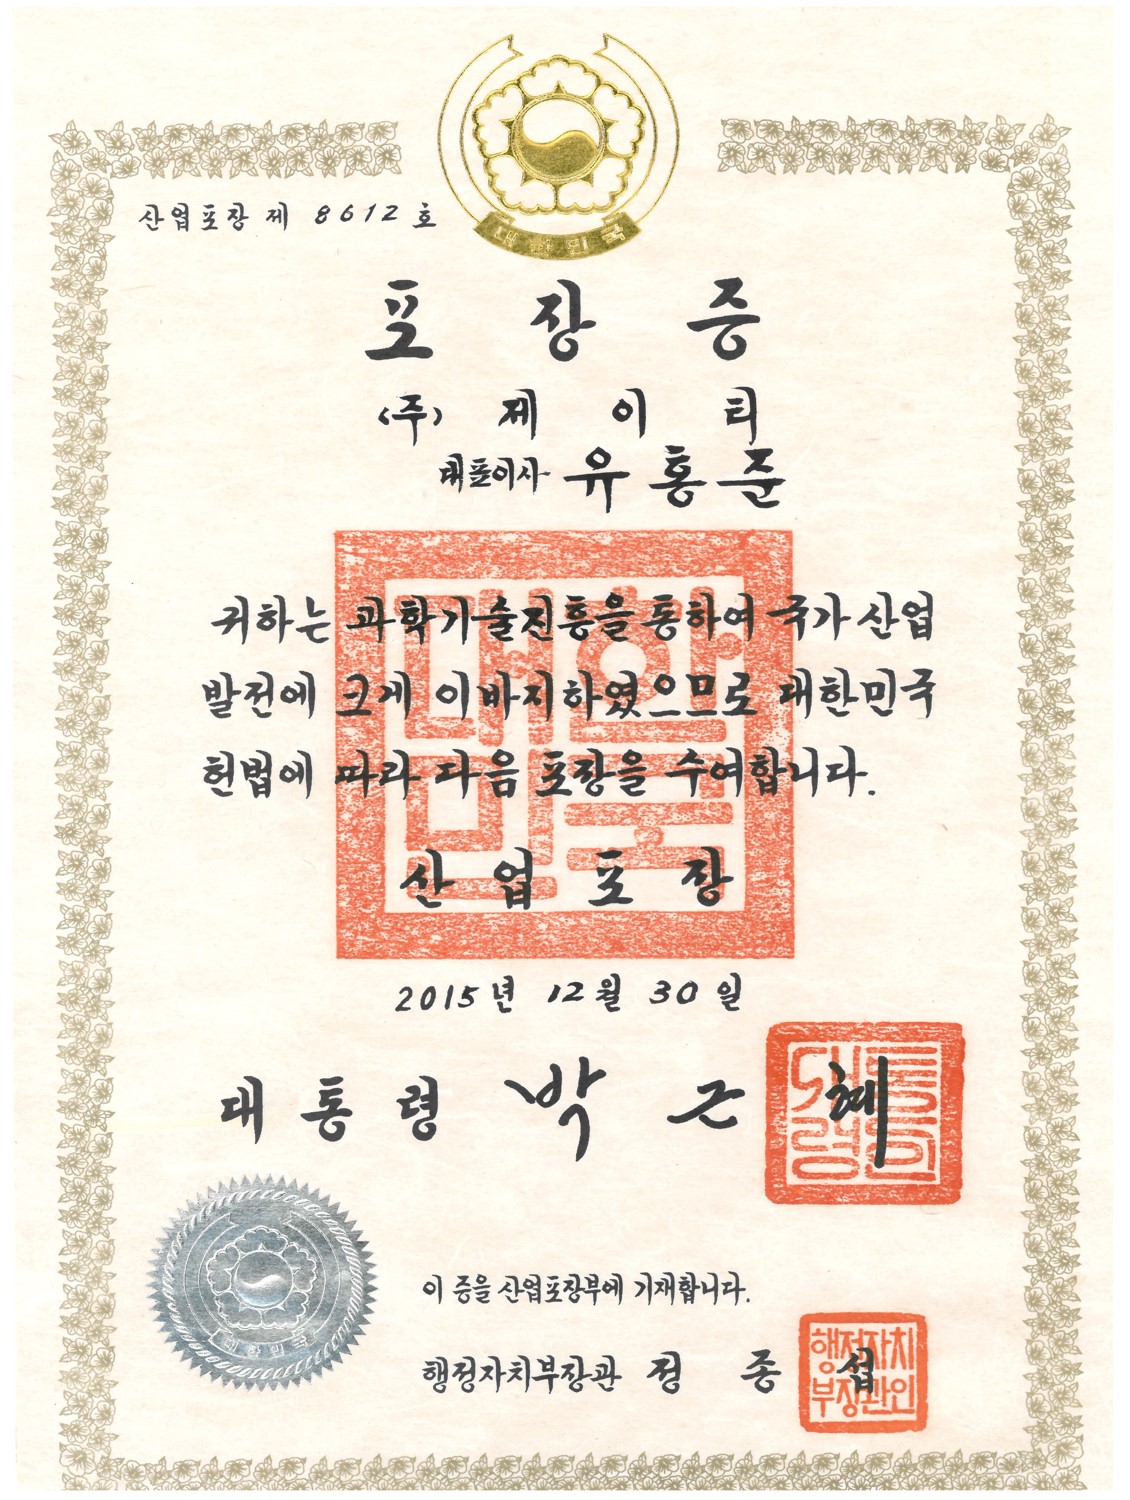 대한민국
산업포장 제 8612 호
포 장 증
(주) 제 이 티
대표이사 유 홍 준
귀하는 과학기술진흥을 통하여 국가 산업
발전에 크게 이바지하였으므로 대한민국
헌법에 따라 다음 포장을 수여합니다.
산 업 포 장
대한
민국
2015년 12월 30일
대 통 령 박 근 혜
대통
령인
대한민국
이 증을 산업포장부에 기재합니다.
행정자치부장관 정 종 섭
행정자치
부장관인